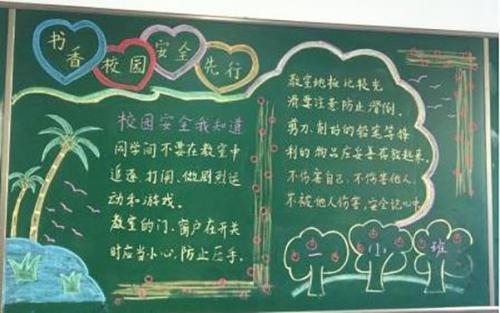 书香校园安全先行
校园安全我知道
同学间不要在教室中
追逐、打闹、做剧烈运
动和游戏。
教室的门、窗户在开关
时应当小心,防止压手。
教室地板比较光
滑要注意防止滑倒。
剪刀、削好的铅笔等锋
利的物品应妥善存放起来。
不伤害自己,不伤害他人,
不被他人伤害,安全记心中
一(1)班